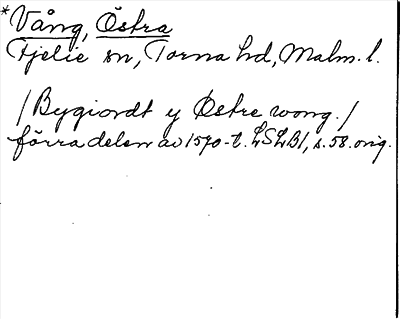 *Vång, Östra
Fjelie sn, Torna hd, Malm. l.
/Bygiordt y Østre wong./
förra delen av 1590-t. LSLB1, s. 58. orig.